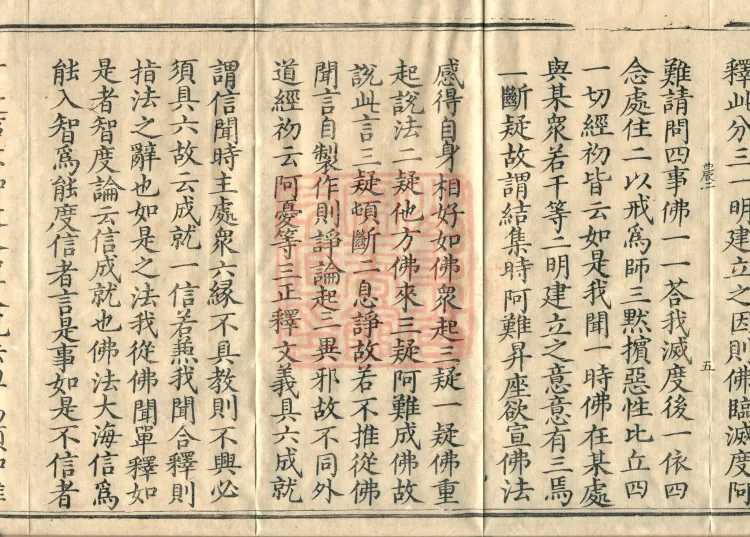 釋此分三一明建立之因則佛臨滅度阿
難請問四事佛一一荅我滅度後一依四
念處住二以戒爲師三黙擯惡性比丘四
一切經初皆云如是我聞一時佛在某處
與某衆若干等二明建立之意意有三焉
一斷疑故謂結集時阿難昇座欲宣佛法
感得自身相好如佛衆起三疑一疑佛重
起說法二疑他方佛來三疑阿難成佛故
說此言三疑頓斷二息諍故若不推從佛
聞言自製作則諍論起三異邪故不同外
道經初云阿憂等三正釋文義具六成就
謂信聞時主處衆六緣不具教則不興必
須具六故云成就一信若兼我聞合釋則
指法之辭也如是之法我從佛聞單釋如
是者智度論云信成就也佛法大海信爲
能入智爲能度信者言是事如是不信者